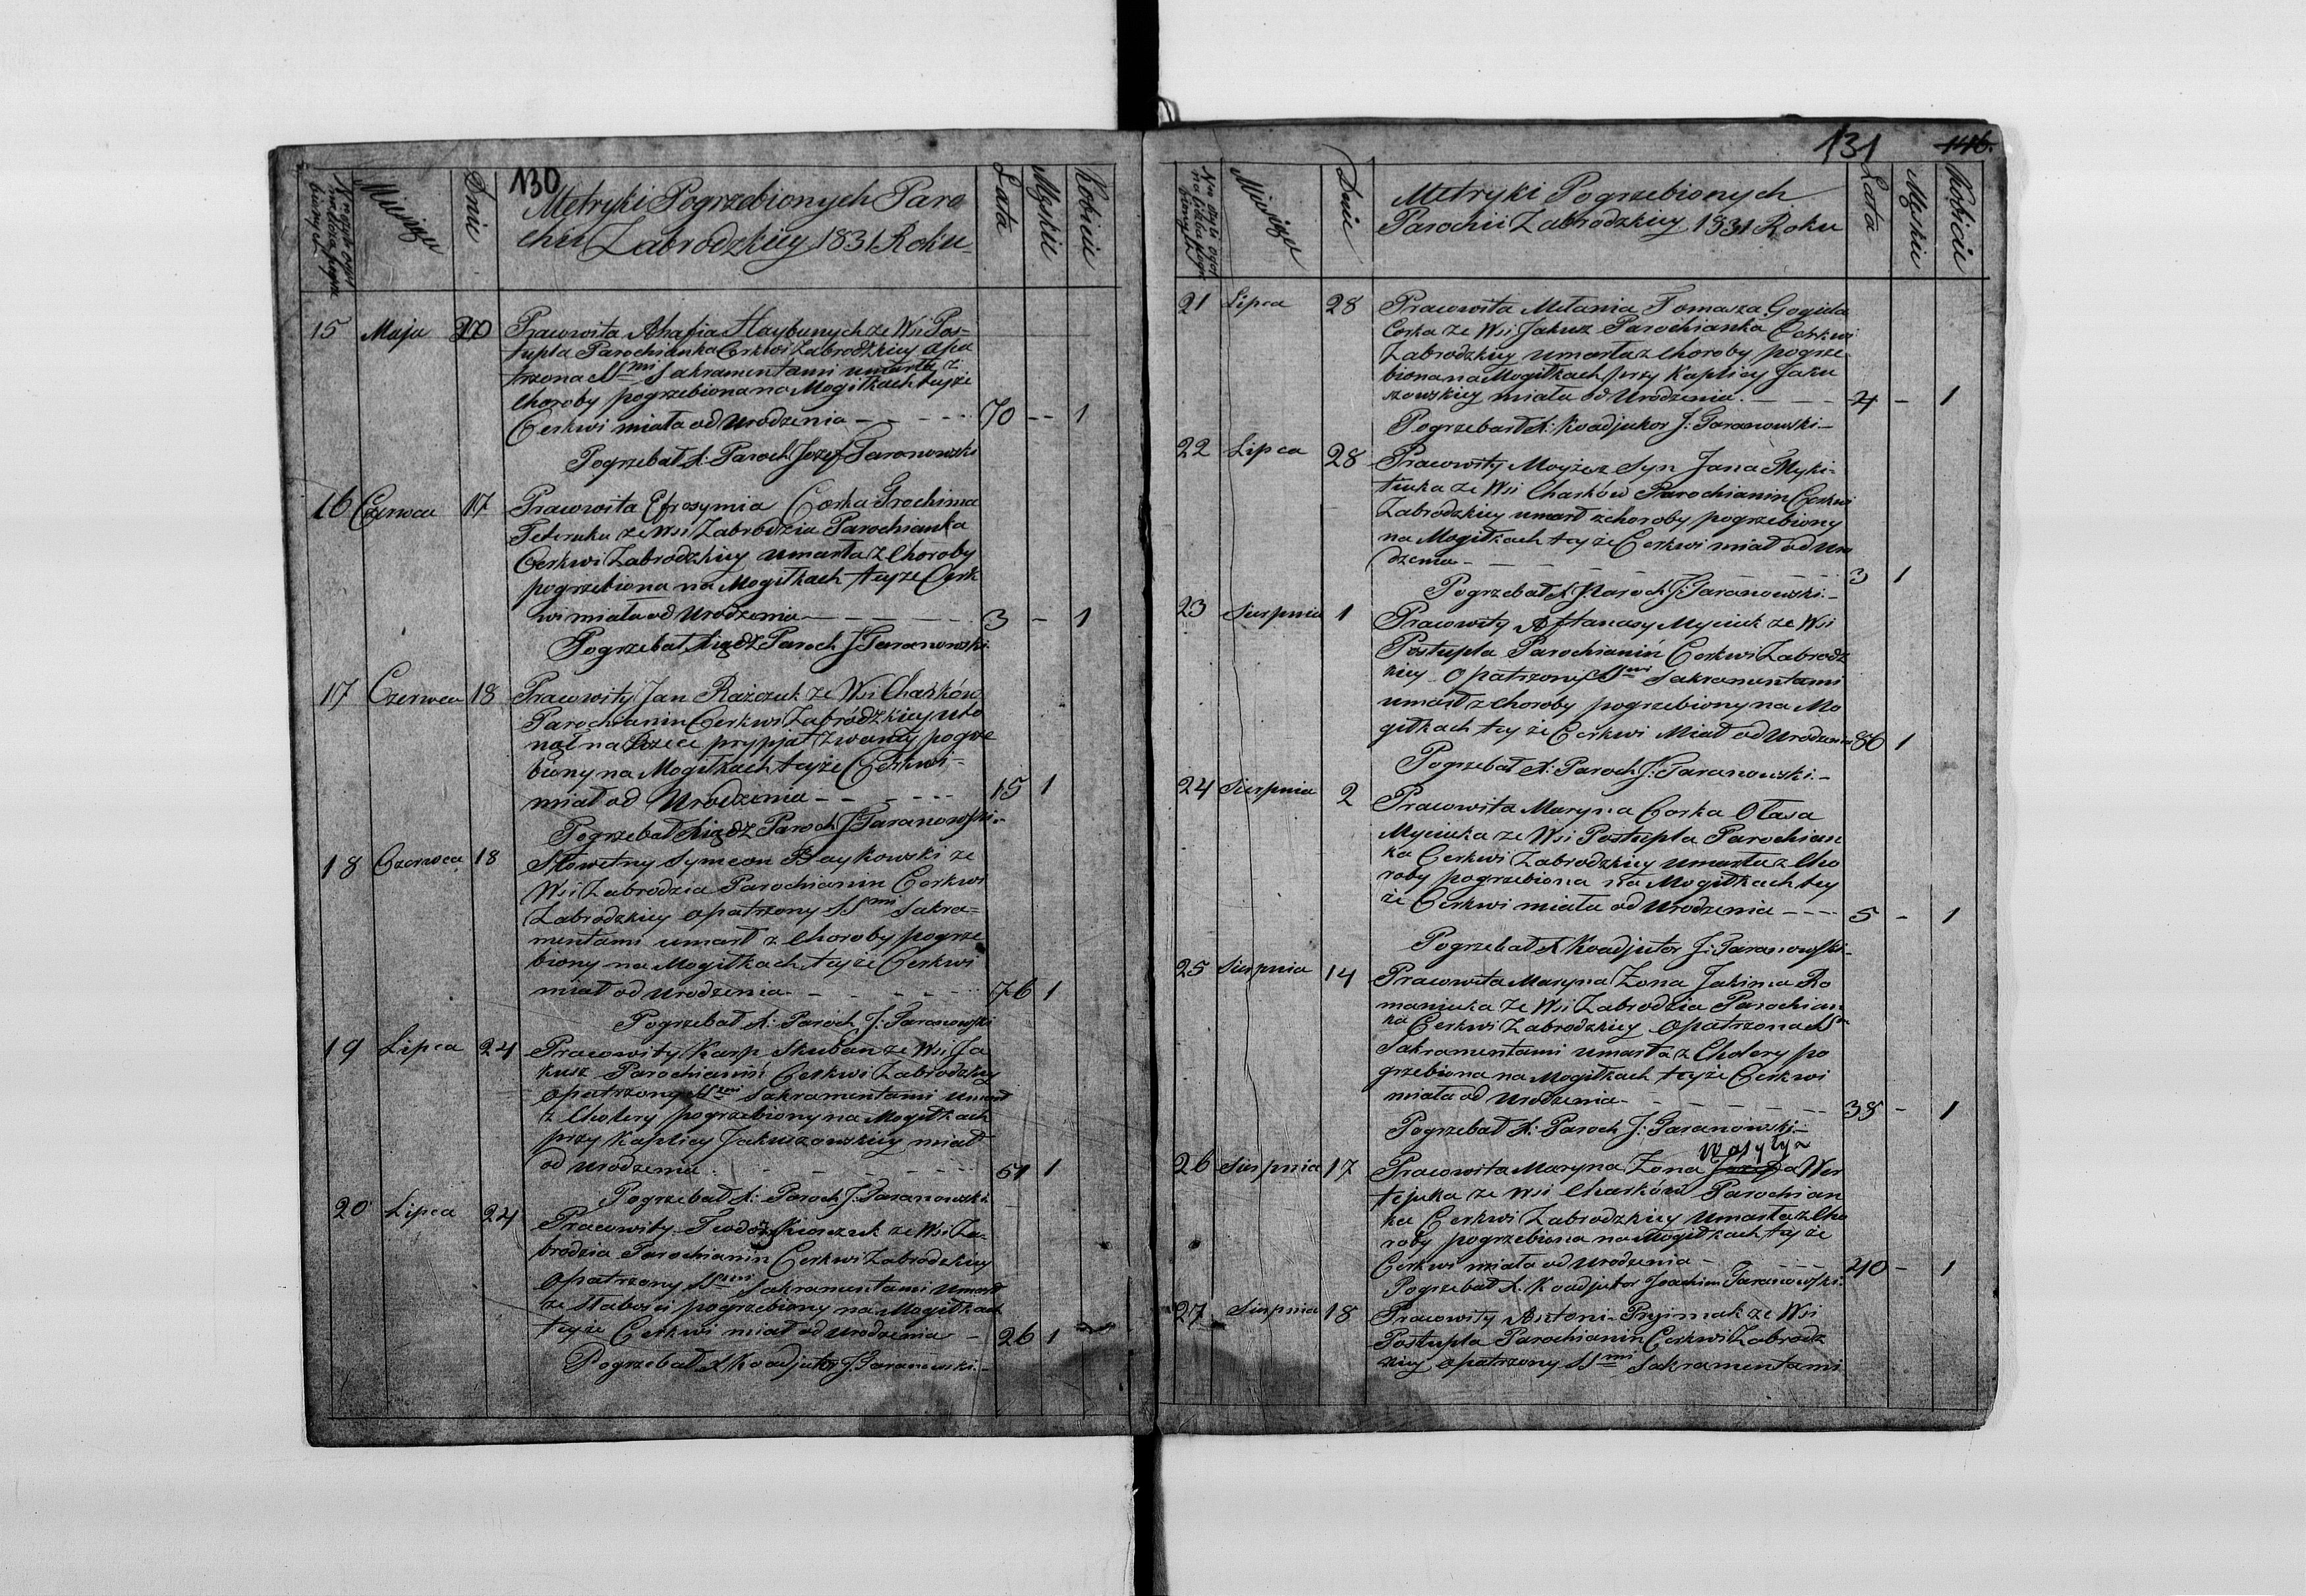 130
Miesiące
Dnie
Metryki Pogrzebionych Paro
chii Zabrodzkiey 1831 Roku
Lata
Męskie
Kobicie
15 Maja 20 Pracowita Ahafia Haybunych ze Wsi Pos=
tupla Parochianka Cerkwi Zabrodzkiey opa
trzona SSmi Sakramentami umarła z
choroby pogrzebiona na Mogiłkach teyże
Cerkwi miała od Urodzenia 70 - 1
Pogrzebał X: Paroch Jozef Taranowski
16 Czerwca 17 Pracowita Efrosymia Corka Trochima
Peteruka ze Wsi Zabrodzia Parochianka
Cerkwi Zabrodzkiey umarła z Choroby
pogrzebiona na Mogiłkach teyże Cerk
wi miała od Urodzenia 3 - 1
Pogrzebał Xiądz Paroch J: Taranowski
17 Czerwca 18 Pracowity Jan Rażczuk ze Wsi Charków
Parochianin Cerkwi Zabródzkiey uto
nął na Rzece prypjat zwaney pogrze
biony na Mogiłkach teyże Cerkwi=
miał od Urodzenia 15 1
Pogrzebał Xiądz Paroch J: Taranowski
18 Czerwca 18 Sławetny Symeon Baykowski ze
Wsi Zabrodzia Parochianin Cerkwi
Zabrodzkiey opatrzony SSmi Sakra=
mentami umarł z Choroby pogrze
biony na Mogiłkach teyże Cerkwi
miał od urodzenia 76 1
Pogrzebał X: Paroch J: Taranowski
19 Lipca 24 Pracowity Karp Skuban ze Wsi Ja
kusz Parochianin Cerkwi Zabrodzkiey
opatrzony SSmi Sakramentami umarł
z Cholery pogrzebiony na Mogiłkach
przy Kaplicy Jakuszowskiey miał
od urodzenia 51 1
Pogrzebał X: Paroch J: Taranowski
20 Lipca 24 Pracowity ze Wsi Za=
brodzia Parochianin Cerkwi Zabrodzkiey
opatrzony SSmi Sakramentami umarł
ze słabości pogrzebiony na Mogiłkach
teyże Cerkwi miał od urodzenia 26 1
Pogrzebał X Koadjutor J: Taranowski
131
146.
Miesiące
Dnie
Metryki Pogrzebionych
Parochii Zabrodzkiey 1831 Roku
Lata
Męskie
Kobicie
21 Lipca 28 Pracowita Melania Tomasza Gogida
Corka ze Wsi Jakusz Parochianka Cerkwi
Zabrodzkiey umarła z choroby pogrze
biona na Mogiłkach przy Kaplicy Jaku
szowskiey miała od Urodzenia 4 - 1
Pogrzebał X: Koadjutor J: Taranowski
22 Lipca 28 Pracowity Moyżesz Syn Jana Myki=
tiuka ze Wsi Charków Parochianin Cerkwi
Zabrodzkiey umarł z choroby pogrzebiony
na Mogiłkach teyże Cerkwi miał od Uro
dzenia 3 1
Pogrzebał X Paroch J: Taranowski
23 Sierpnia 1 Pracowity Aftanasy Myciuk ze Wsi
Postupla Parochianin Cerkwi Zabrodz
kiey Opatrzony SSmi Sakramentami
umarł z choroby pogrzebiony na Mo
giłkach teyże Cerkwi Miał od Urodzenia 86 1
Pogrzebał X: Paroch J: Taranowski
24 Sierpnia 2 Pracowita Maryna Corka Ołasa
Myciuka ze Wsi Postupla Parochian
ka Cerkwi Zabrodzkiey umarła z Cho
roby pogrzebiona na Mogiłkach tey
że Cerkwi miała od urodzenia 5 - 1
Pogrzebał X Koadjutor J: Taranowski
25 Sierpnia 14 Pracowita Maryna Zona Jakima Ro
maniuka ze Wsi Zabrodzia Parochian
ka Cerkwi Zabrodzkiey opatrzona SSmi
Sakramentami umarła z Cholery po
grzebiona na Mogiłkach teyże Cerkwi
miała od urodzenia 38 - 1
Pogrzebał X: Paroch J: Taranowski
Wasyla
26 Sierpnia 17 Pracowita Maryna Zona Wer
tejuka ze Wsi Charków Parochian
ka Cerkwi Zabrodzkiey umarła z Cho
roby pogrzebiona na Mogiłkach teyże
Cerkwi miała od urodzenia 40 - 1
Pogrzebał X: Koadjutor Joachim Taranowski
27 Sierpnia 18 Pracowity Antoni Pryimak ze Wsi
Postupla Parochianin Cerkwi Zabrodz
kiey opatrzony SSmi Sakramentami